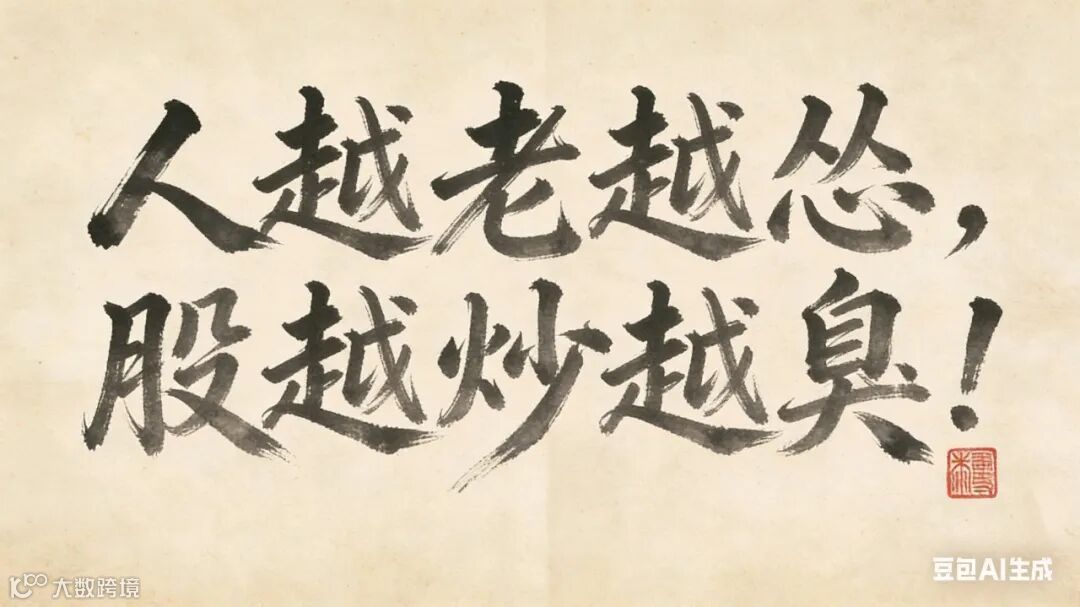 人越老越怂，
股越炒越臭！
大数跨境
豆包AI生成